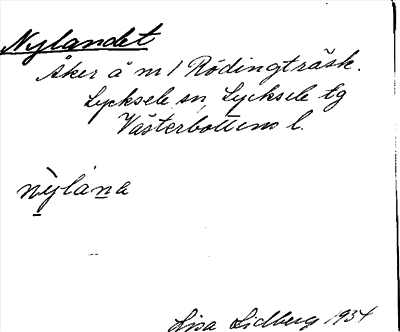 Nylandet
Åker å m/ Rödingträsk.
Lycksele sn, Lycksele tg
Västerbottens l.
nỳlána
Lisa Lidberg 1934